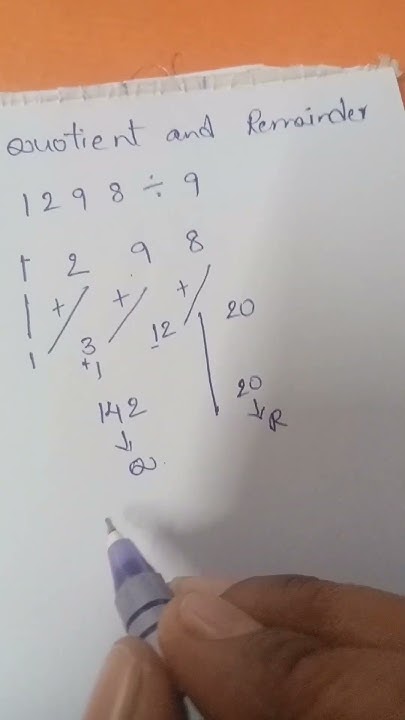 Quotient and Remainder
1298 ÷ 9
1 2 9 8
+ + +
20
1 3 12
+1
142 20
↓ ↓
Q. R